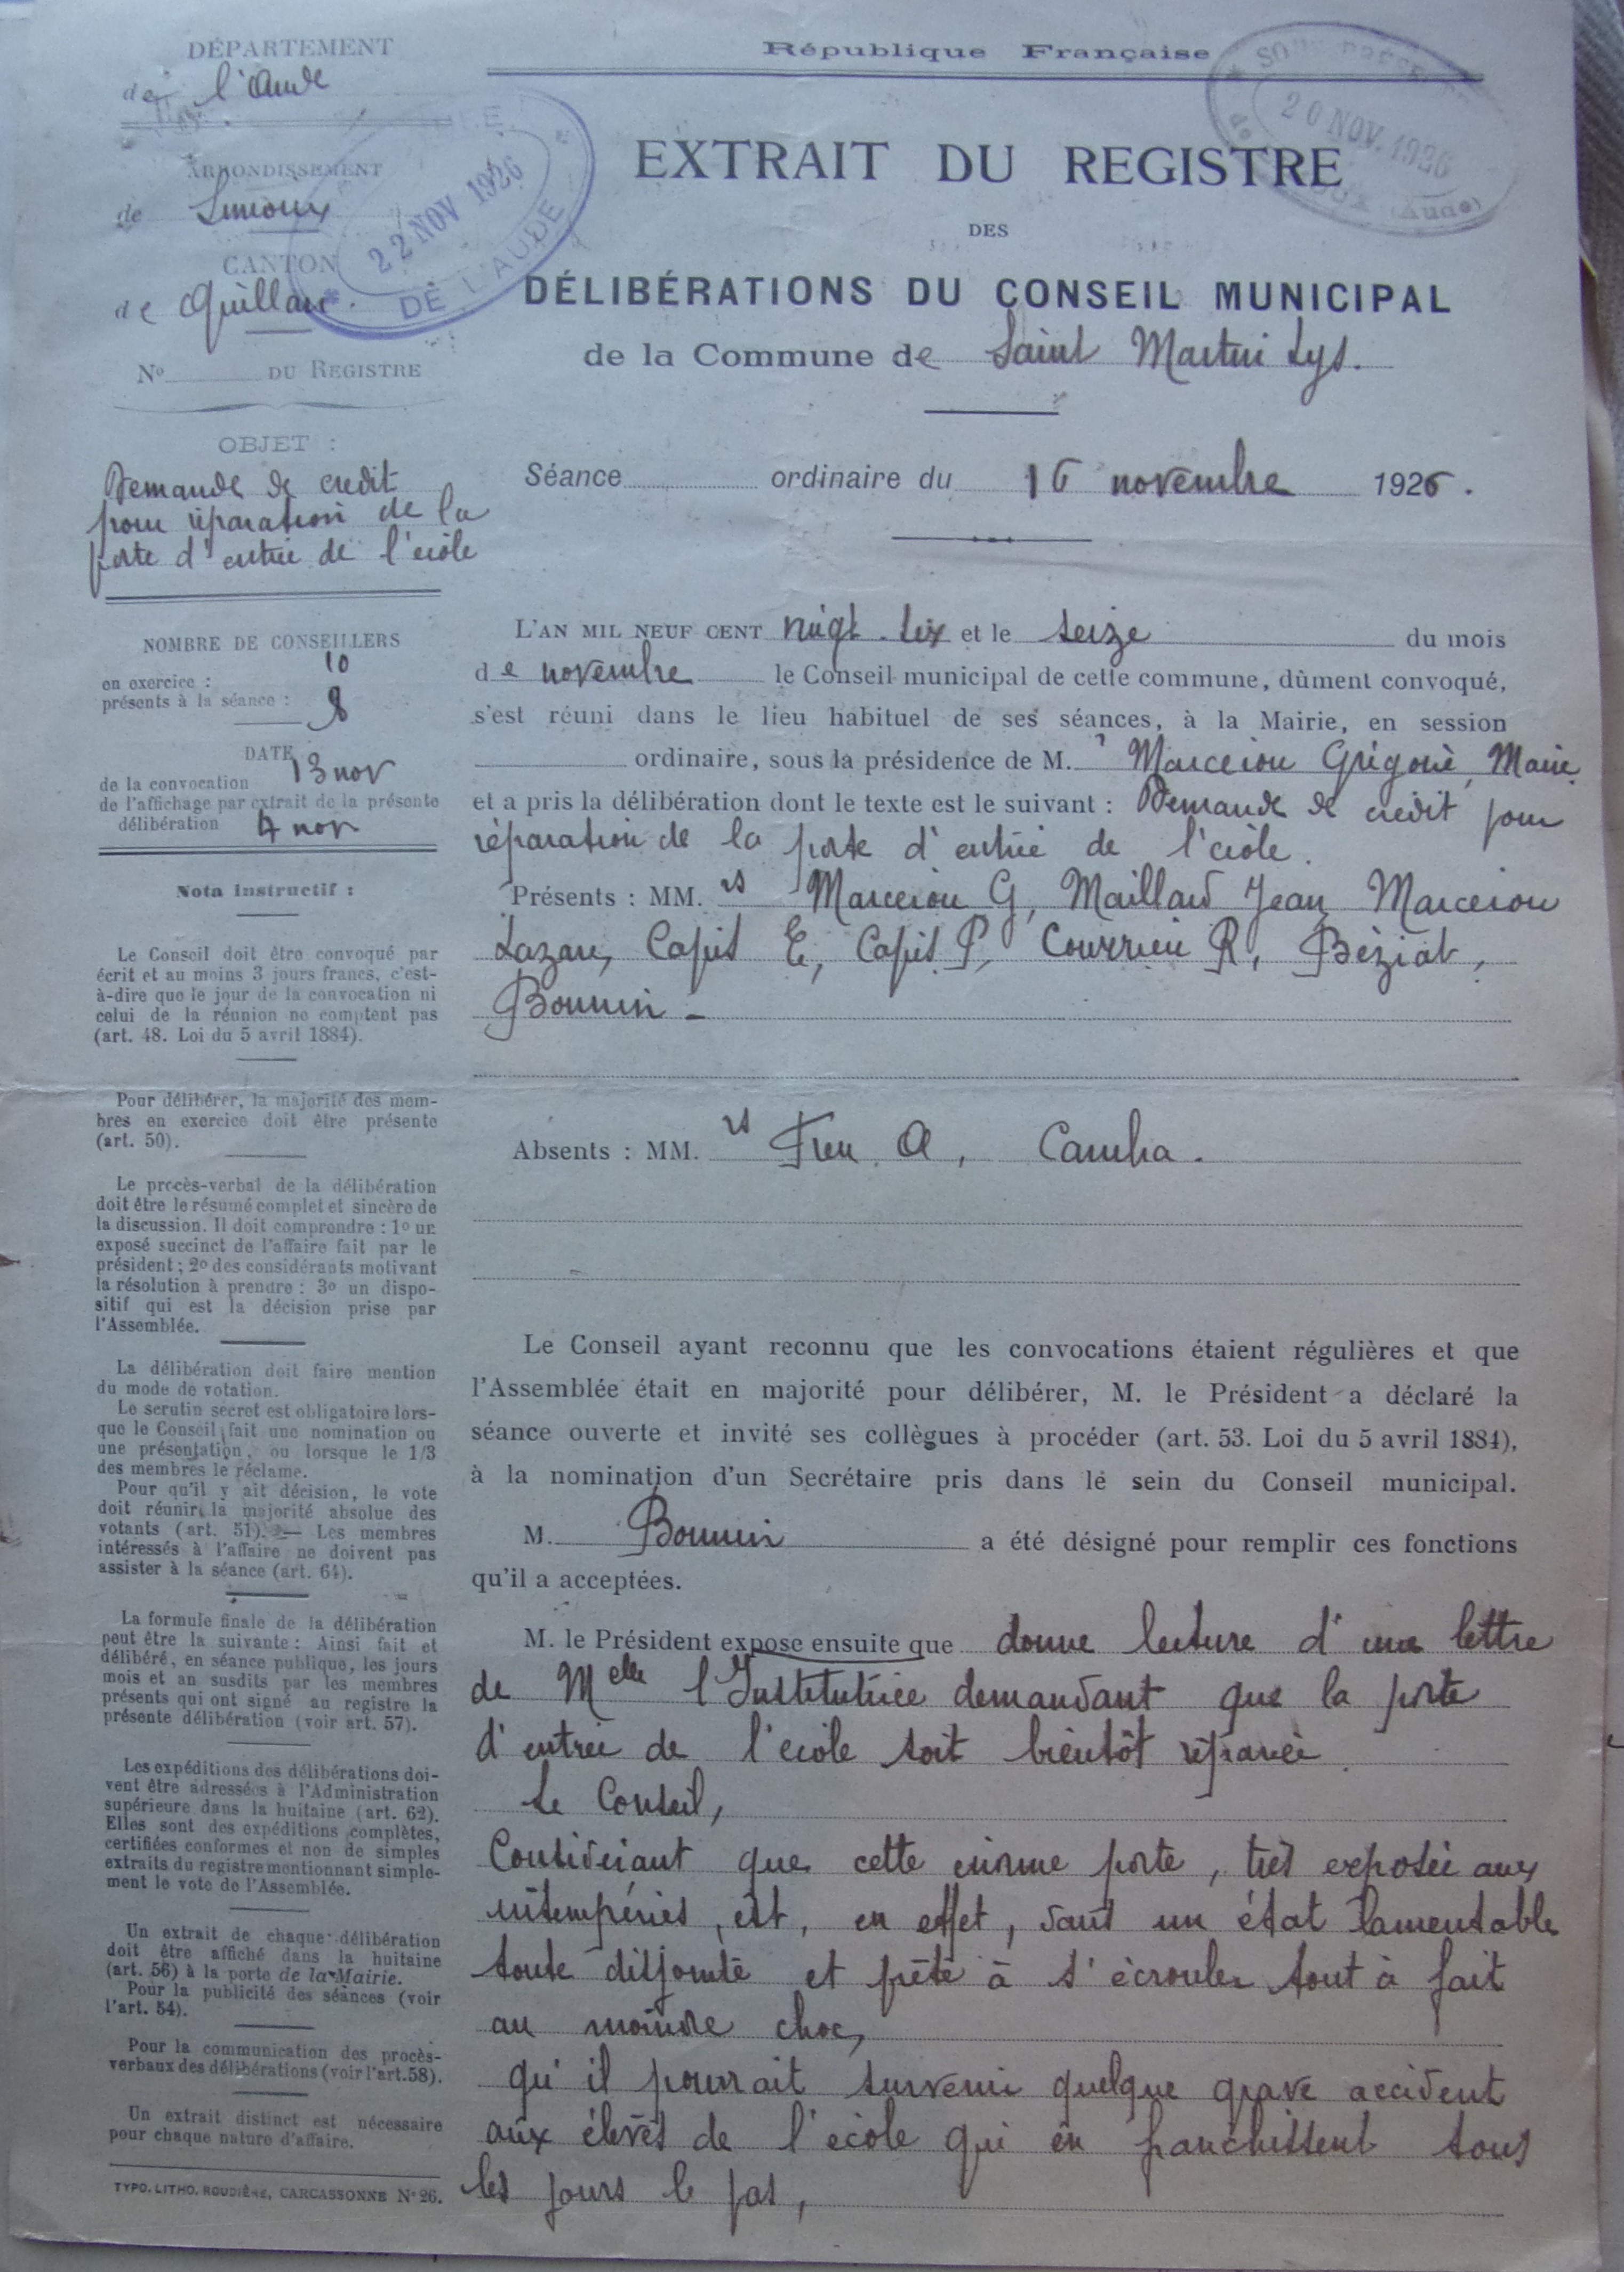 DÉPARTEMENT
de l'Aude
ARRONDISSEMENT
de Limoux
CANTON
de Quillan.
N° DU REGISTRE
OBJET :
Demande de credit
pour réparation de la
porte d'entrée de l'école
NOMBRE DE CONSEILLERS
en exercice : 10
présents à la séance : 8
DATE
de la convocation 13 nov
de l'affichage par extrait de la présente
délibération nov
Nota instructif :
Le Conseil doit être convoqué par
écrit et au moins 3 jours francs, c'est-
à-dire que le jour de la convocation ni
celui de la réunion ne comptent pas
(art. 48. Loi du 5 avril 1884).
Pour délibérer, la majorité des mem-
bres en exercice doit être présente
(art. 50).
Le procès-verbal de la délibération
doit être le résumé complet et sincère de
la discussion. Il doit comprendre : 1° un
exposé succinct de l'affaire fait par le
président ; 2° des considérants motivant
la résolution à prendre : 3° un dispo-
sitif qui est la décision prise par
l'Assemblée.
La délibération doit faire mention
du mode de votation.
Le scrutin secret est obligatoire lors-
que le Conseil fait une nomination ou
une présentation, ou lorsque le 1/3
des membres le réclame.
Pour qu'il y ait décision, le vote
doit réunir la majorité absolue des
votants (art. 51). — Les membres
intéressés à l'affaire ne doivent pas
assister à la séance (art. 64).
La formule finale de la délibération
peut être la suivante : Ainsi fait et
délibéré, en séance publique, les jours
mois et an susdits par les membres
présents qui ont signé au registre la
présente délibération (voir art. 57).
Les expéditions des délibérations doi-
vent être adressées à l'Administration
supérieure dans la huitaine (art. 62).
Elles sont des expéditions complètes,
certifiées conformes et non de simples
extraits du registre mentionnant simple-
ment le vote de l'Assemblée.
Un extrait de chaque délibération
doit être affiché dans la huitaine
(art. 56) à la porte de la Mairie.
Pour la publicité des séances (voir
l'art. 54).
Pour la communication des procès-
verbaux des délibérations (voir l'art. 58).
Un extrait distinct est nécessaire
pour chaque nature d'affaire.
TYPO. LITHO. ROUDIÈRE, CARCASSONNE N° 26.
22 NOV 1926
DE L'AUDE
République Française
20 NOV. 1926
(Aude)
EXTRAIT DU REGISTRE
DES
DÉLIBÉRATIONS DU CONSEIL MUNICIPAL
de la Commune de Saint Martin Lys.
Séance ordinaire du 16 novembre 1926.
L'AN MIL NEUF CENT vingt-six et le seize du mois
de novembre le Conseil municipal de cette commune, dûment convoqué,
s'est réuni dans le lieu habituel de ses séances, à la Mairie, en session
ordinaire, sous la présidence de M. Marceron Grégoire, Maire
et a pris la délibération dont le texte est le suivant : Demande de crédit pour
réparation de la porte d'entrée de l'école.
Présents : MM. rs Marceron G, Maillard Jean, Marceron
Lazare, Capis E, Capis P, Courrieu R, Béziat,
Bonnin -
Absents : MM. rs A,
Le Conseil ayant reconnu que les convocations étaient régulières et que
l'Assemblée était en majorité pour délibérer, M. le Président a déclaré la
séance ouverte et invité ses collègues à procéder (art. 53. Loi du 5 avril 1884),
à la nomination d'un Secrétaire pris dans le sein du Conseil municipal.
M. Bonnin a été désigné pour remplir ces fonctions
qu'il a acceptées.
M. le Président expose ensuite que donne lecture d'une lettre
de Melle l'Institutrice demandant que la porte
d'entrée de l'école soit bientôt réparée.
Le Conseil,
Considérant que cette énorme porte, très exposée aux
intempéries, est, en effet, dans un état lamentable
toute disjointe et prête à s'écrouler tout à fait
au moindre choc,
qu'il pourrait survenir quelque grave accident
aux élèves de l'école qui en franchissent tous
les jours le pas,